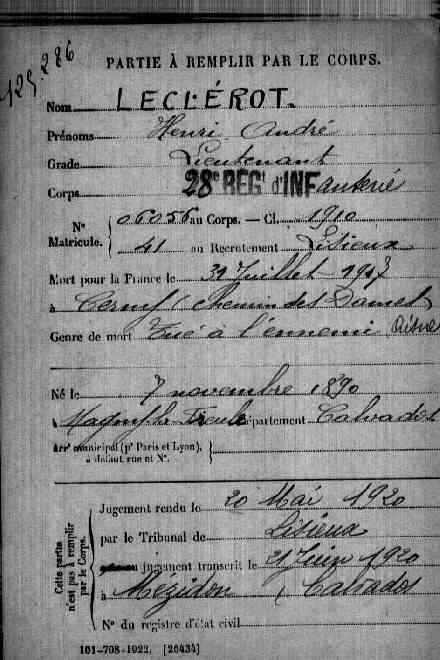 125.286
PARTIE À REMPLIR PAR LE CORPS.
Nom LECLÉROT.
Prénoms Henri André
Grade Lieutenant
Corps 28e RÉGt d'INFanterie
No Matricule. { 06056 au Corps. — Cl. 1910
41 au Recrutement Lisieux
Mort pour la France le 31 Juillet 1917
à Cerny (Chemin des Dames)
Genre de mort Tué à l'ennemi (Aisne
Né le 7 novembre 1890
à Magny-la Freule Département Calvados
Arrt municipal (pr Paris et Lyon),
à défaut rue et No.
Cette partie n'est pas à remplir par le Corps.
Jugement rendu le 20 Mai 1920
par le Tribunal de Lisieux
jugement transcrit le Juin 1920
à Mézidon (Calvados
No du registre d'état civil
101-708-1922. [26434]